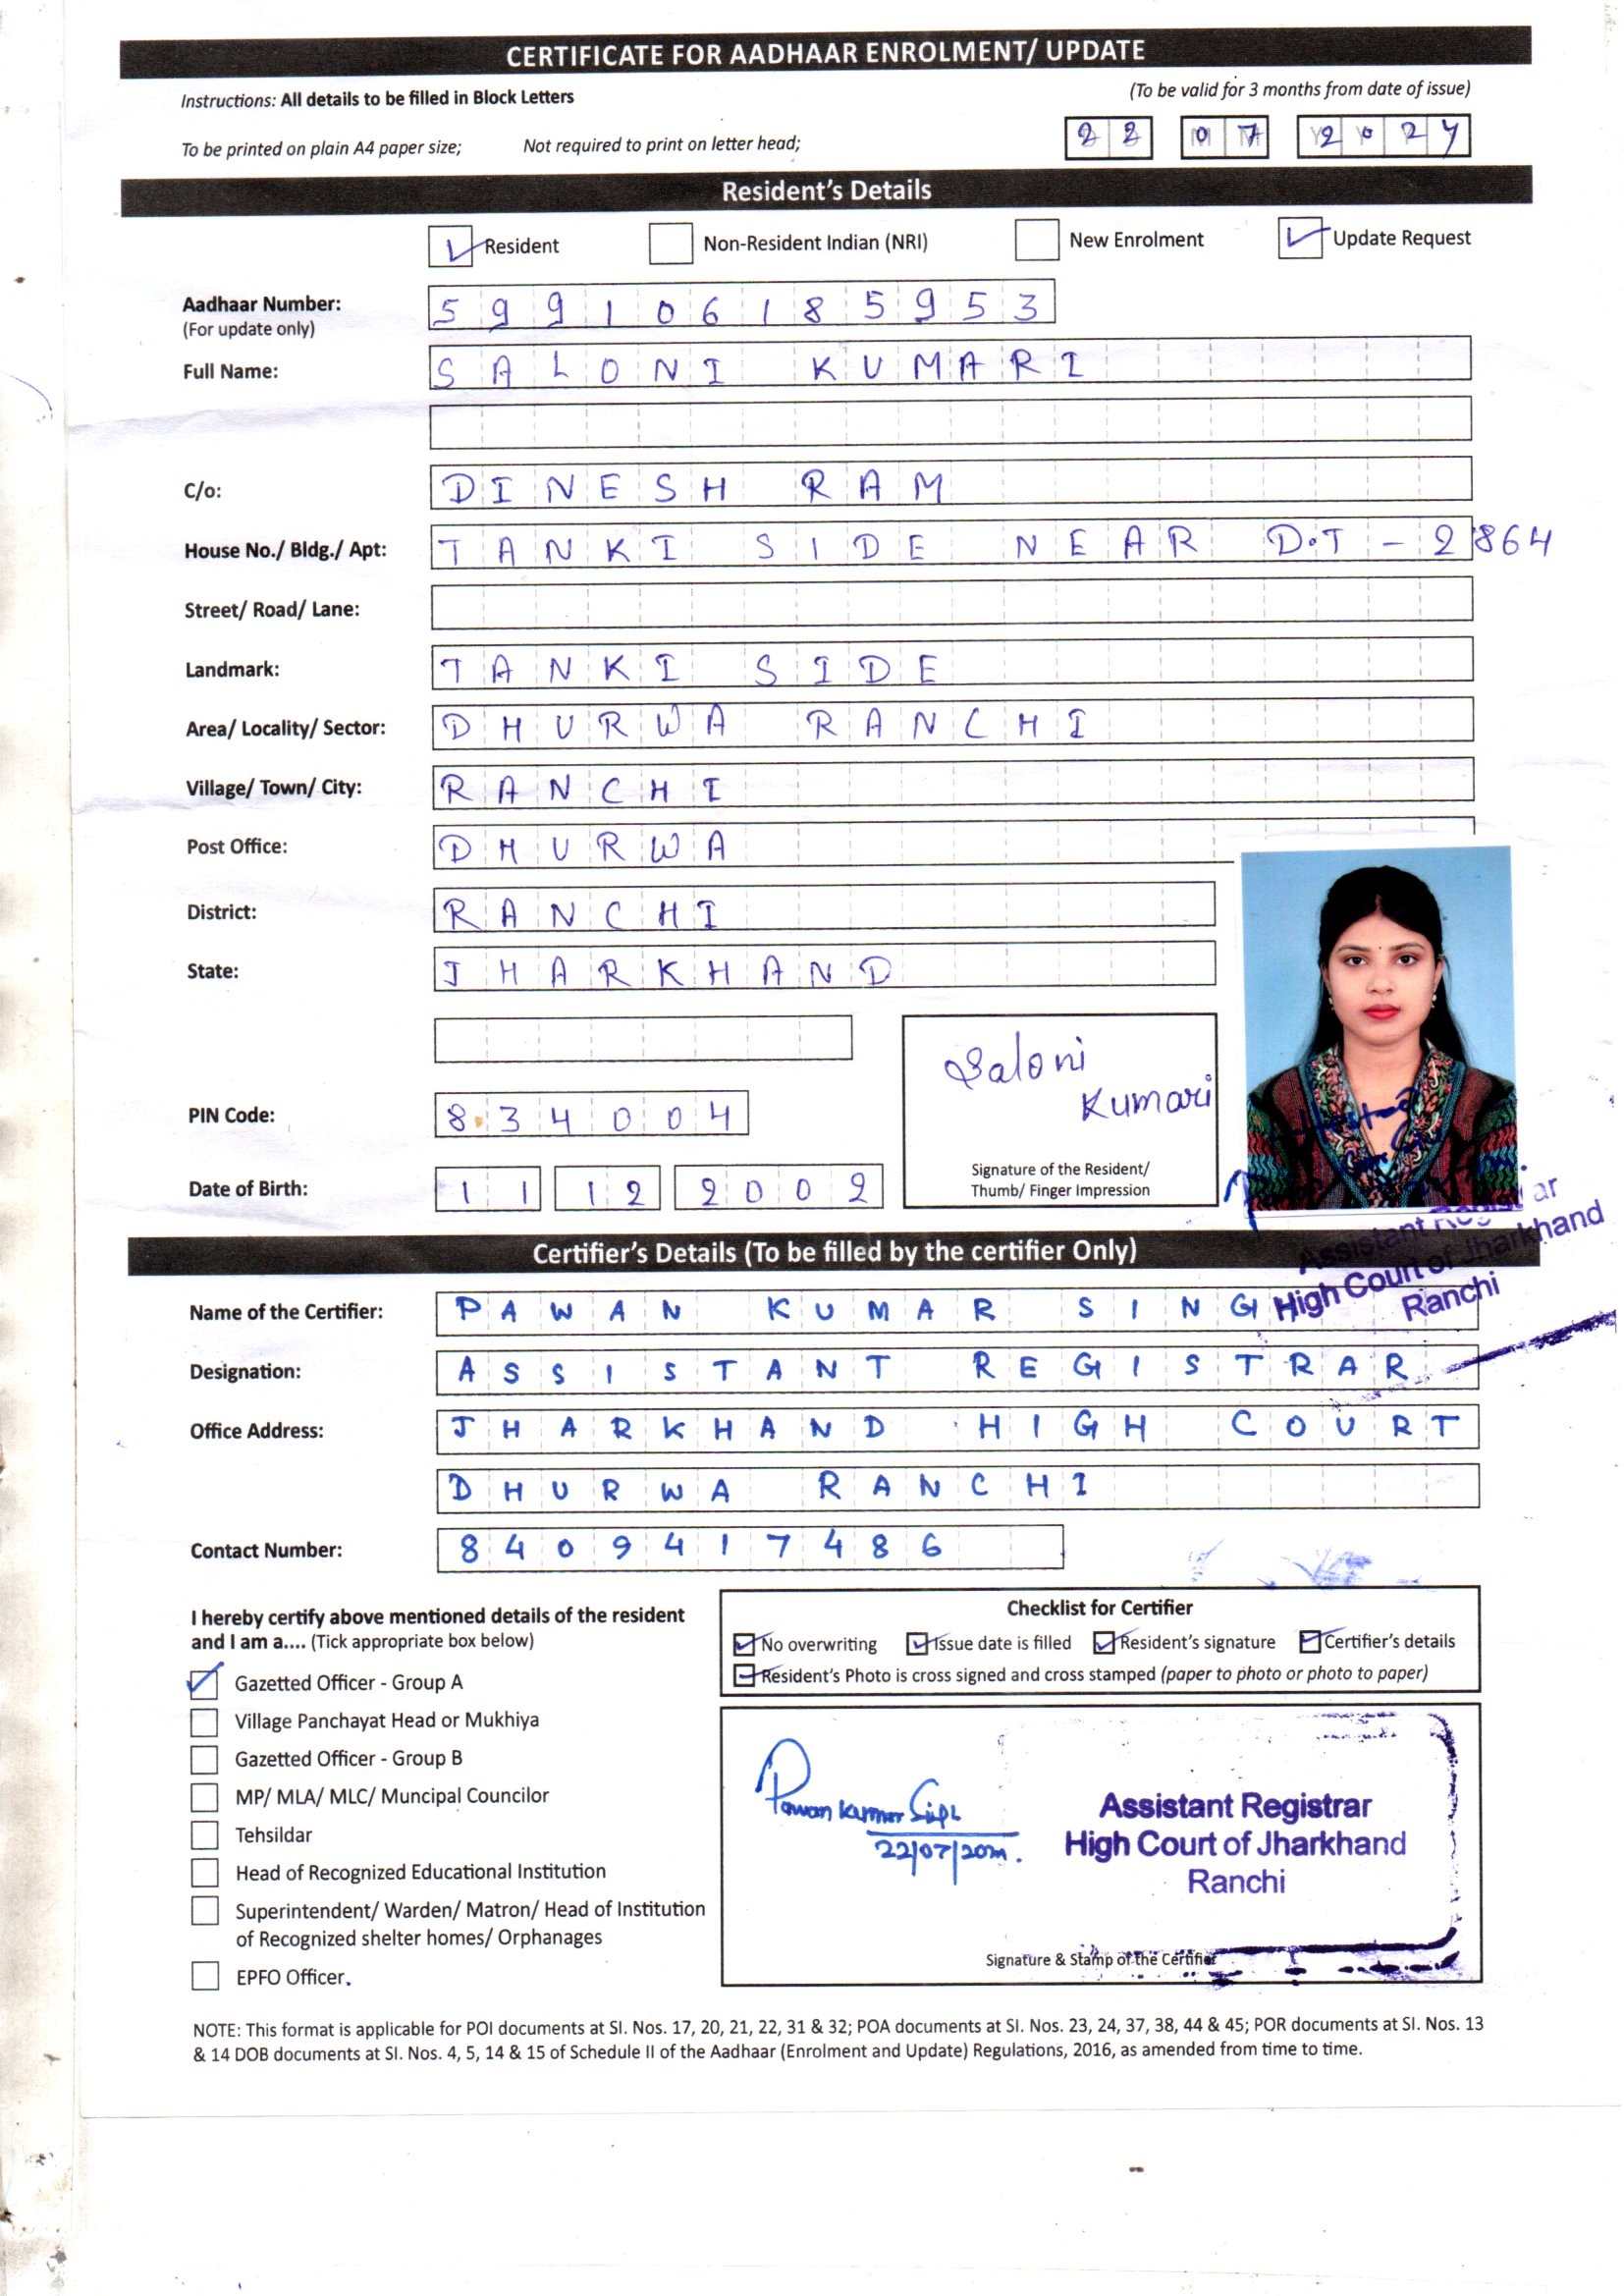 CERTIFICATE FOR AADHAAR ENROLMENT/ UPDATE
Instructions: All details to be filled in Block Letters
(To be valid for 3 months from date of issue)
To be printed on plain A4 paper size; Not required to print on letter head;
22 07 2024
Resident's Details
Resident Non-Resident Indian (NRI) New Enrolment Update Request
Aadhaar Number: 599106185953
(For update only)
Full Name: SALONI KUMARI
C/o: DINESH RAM
House No./ Bldg./ Apt: TANKI SIDE NEAR D.T - 2864
Street/ Road/ Lane:
Landmark: TANKI SIDE
Area/ Locality/ Sector: DHURWA RANCHI
Village/ Town/ City: RANCHI
Post Office: DHURWA
District: RANCHI
State: JHARKHAND
Saloni
Kumari
PIN Code: 834004
Signature of the Resident/
Thumb/ Finger Impression
Date of Birth: 11 12 2002
Assistant Registrar
High Court of Jharkhand
Ranchi
Certifier's Details (To be filled by the certifier Only)
Name of the Certifier: PAWAN KUMAR SING
Designation: ASSISTANT REGISTRAR
Office Address: JHARKHAND HIGH COURT
DHURWA RANCHI
Contact Number: 8409417486
I hereby certify above mentioned details of the resident
and I am a.... (Tick appropriate box below)
Gazetted Officer - Group A
Village Panchayat Head or Mukhiya
Gazetted Officer - Group B
MP/ MLA/ MLC/ Muncipal Councilor
Tehsildar
Head of Recognized Educational Institution
Superintendent/ Warden/ Matron/ Head of Institution
of Recognized shelter homes/ Orphanages
EPFO Officer.
Checklist for Certifier
No overwriting Issue date is filled Resident's signature Certifier's details
Resident's Photo is cross signed and cross stamped (paper to photo or photo to paper)
Pawan Kumar
22/07/
Assistant Registrar
High Court of Jharkhand
Ranchi
Signature & Stamp of the Certifier
NOTE: This format is applicable for POI documents at SI. Nos. 17, 20, 21, 22, 31 & 32; POA documents at SI. Nos. 23, 24, 37, 38, 44 & 45; POR documents at SI. Nos. 13
& 14 DOB documents at SI. Nos. 4, 5, 14 & 15 of Schedule II of the Aadhaar (Enrolment and Update) Regulations, 2016, as amended from time to time.